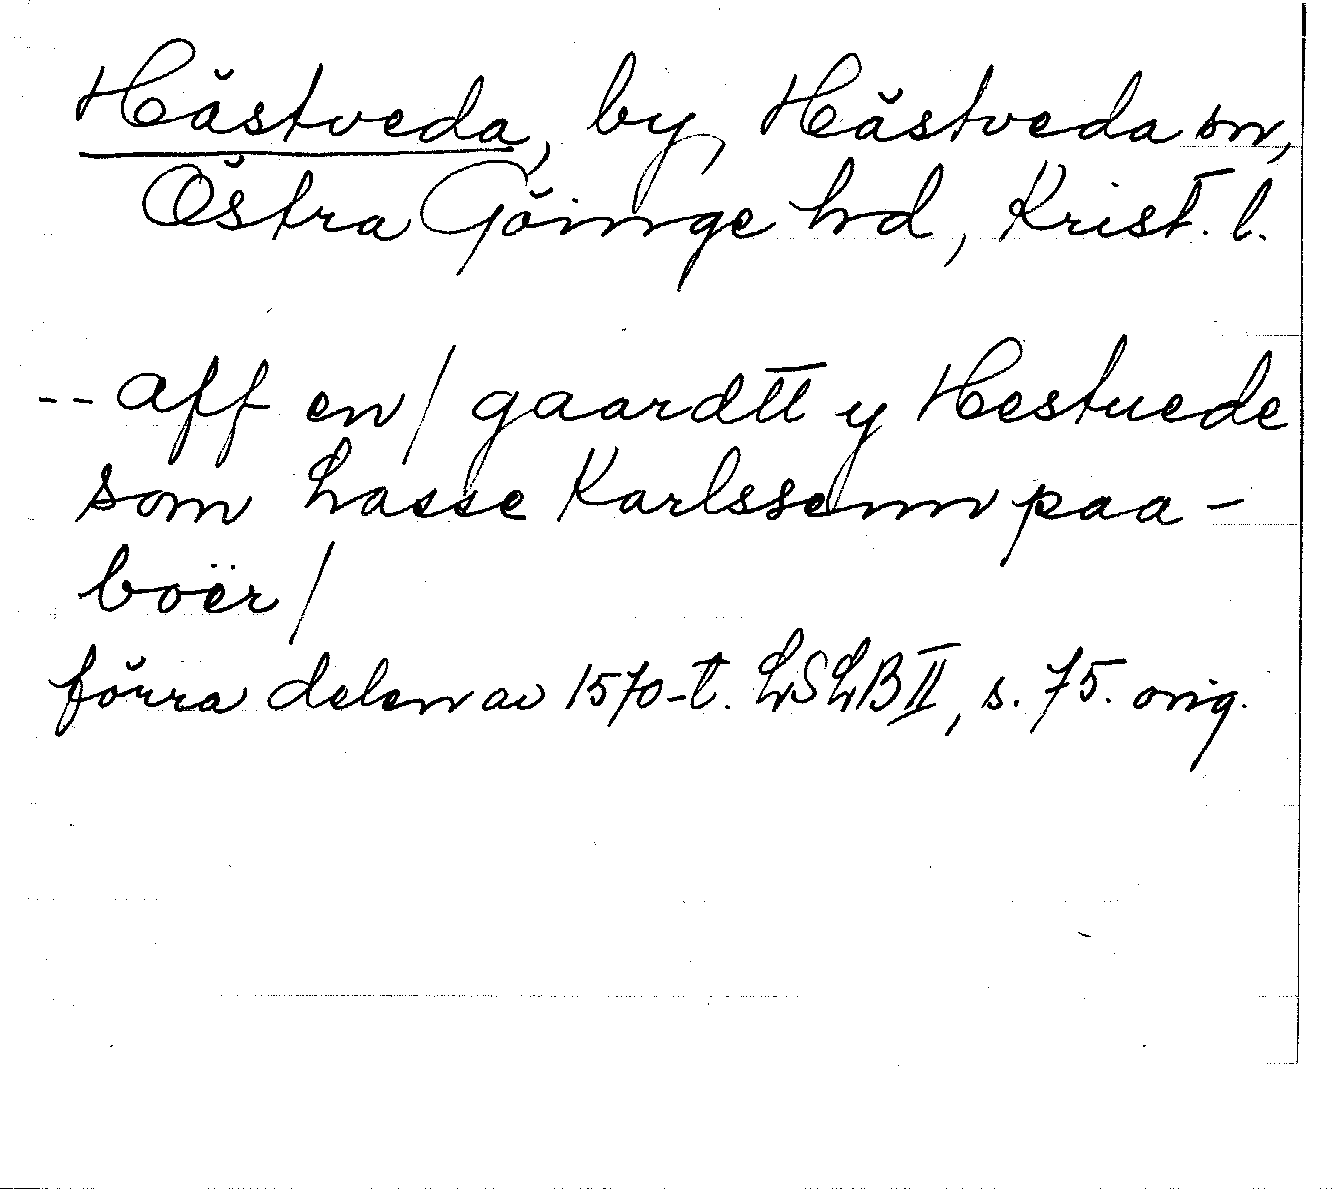 Hästveda, by, Hästveda sn,
Östra Göinge hd, Krist. l.
-- aff en / gaardtt y Hestuede
som Lasse Karlssenn paa-
boër /
förra delen av 1570-t. LSLB II, s. 75. orig.